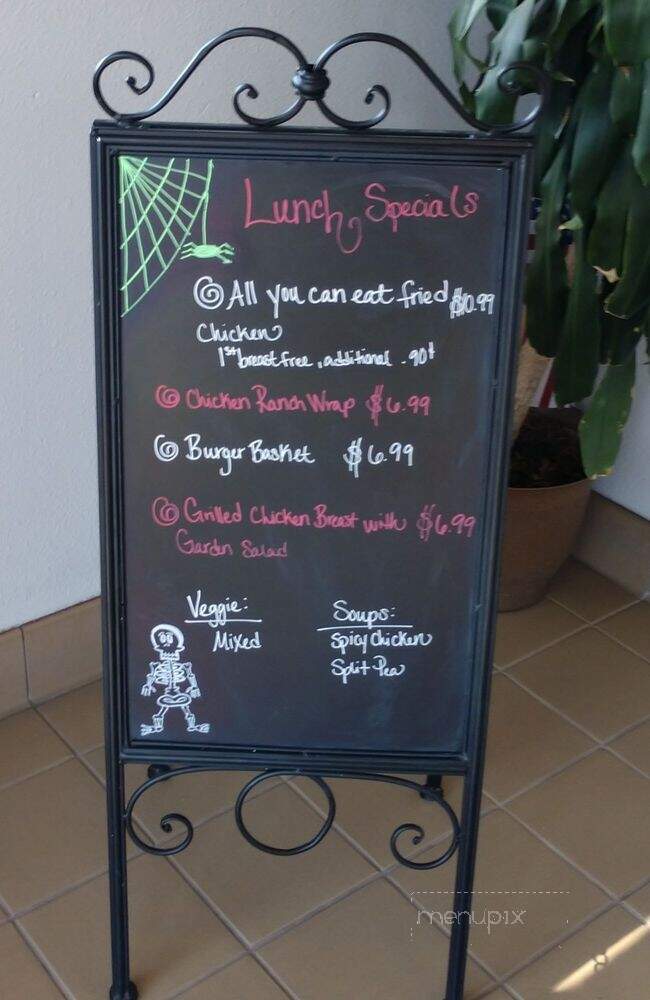 Lunch Specials
All you can eat fried $10.99
Chicken
1st breast free, additional .90¢
Chicken Ranch Wrap $6.99
Burger Basket $6.99
Grilled Chicken Breast with $6.99
Garden Salad
Veggie:
Mixed
Soups:
Spicy Chicken
Split Pea
menupix